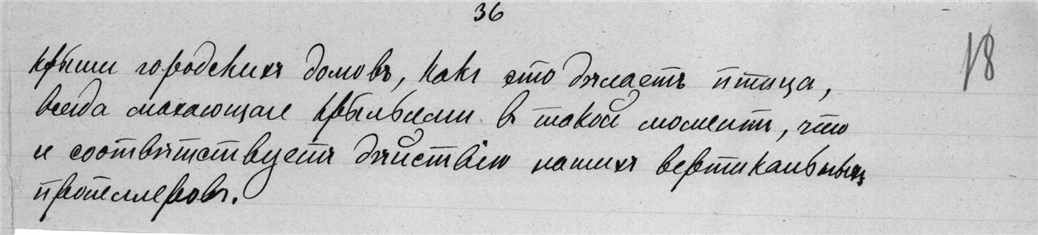 36
18
крыши городскихъ домовъ, какъ это дѣлаетъ птица,
всегда махающая крыльями в такой моментъ, что
и соотвѣтствуетъ дѣйствію нашихъ вертикальныхъ
пропеллеровъ.